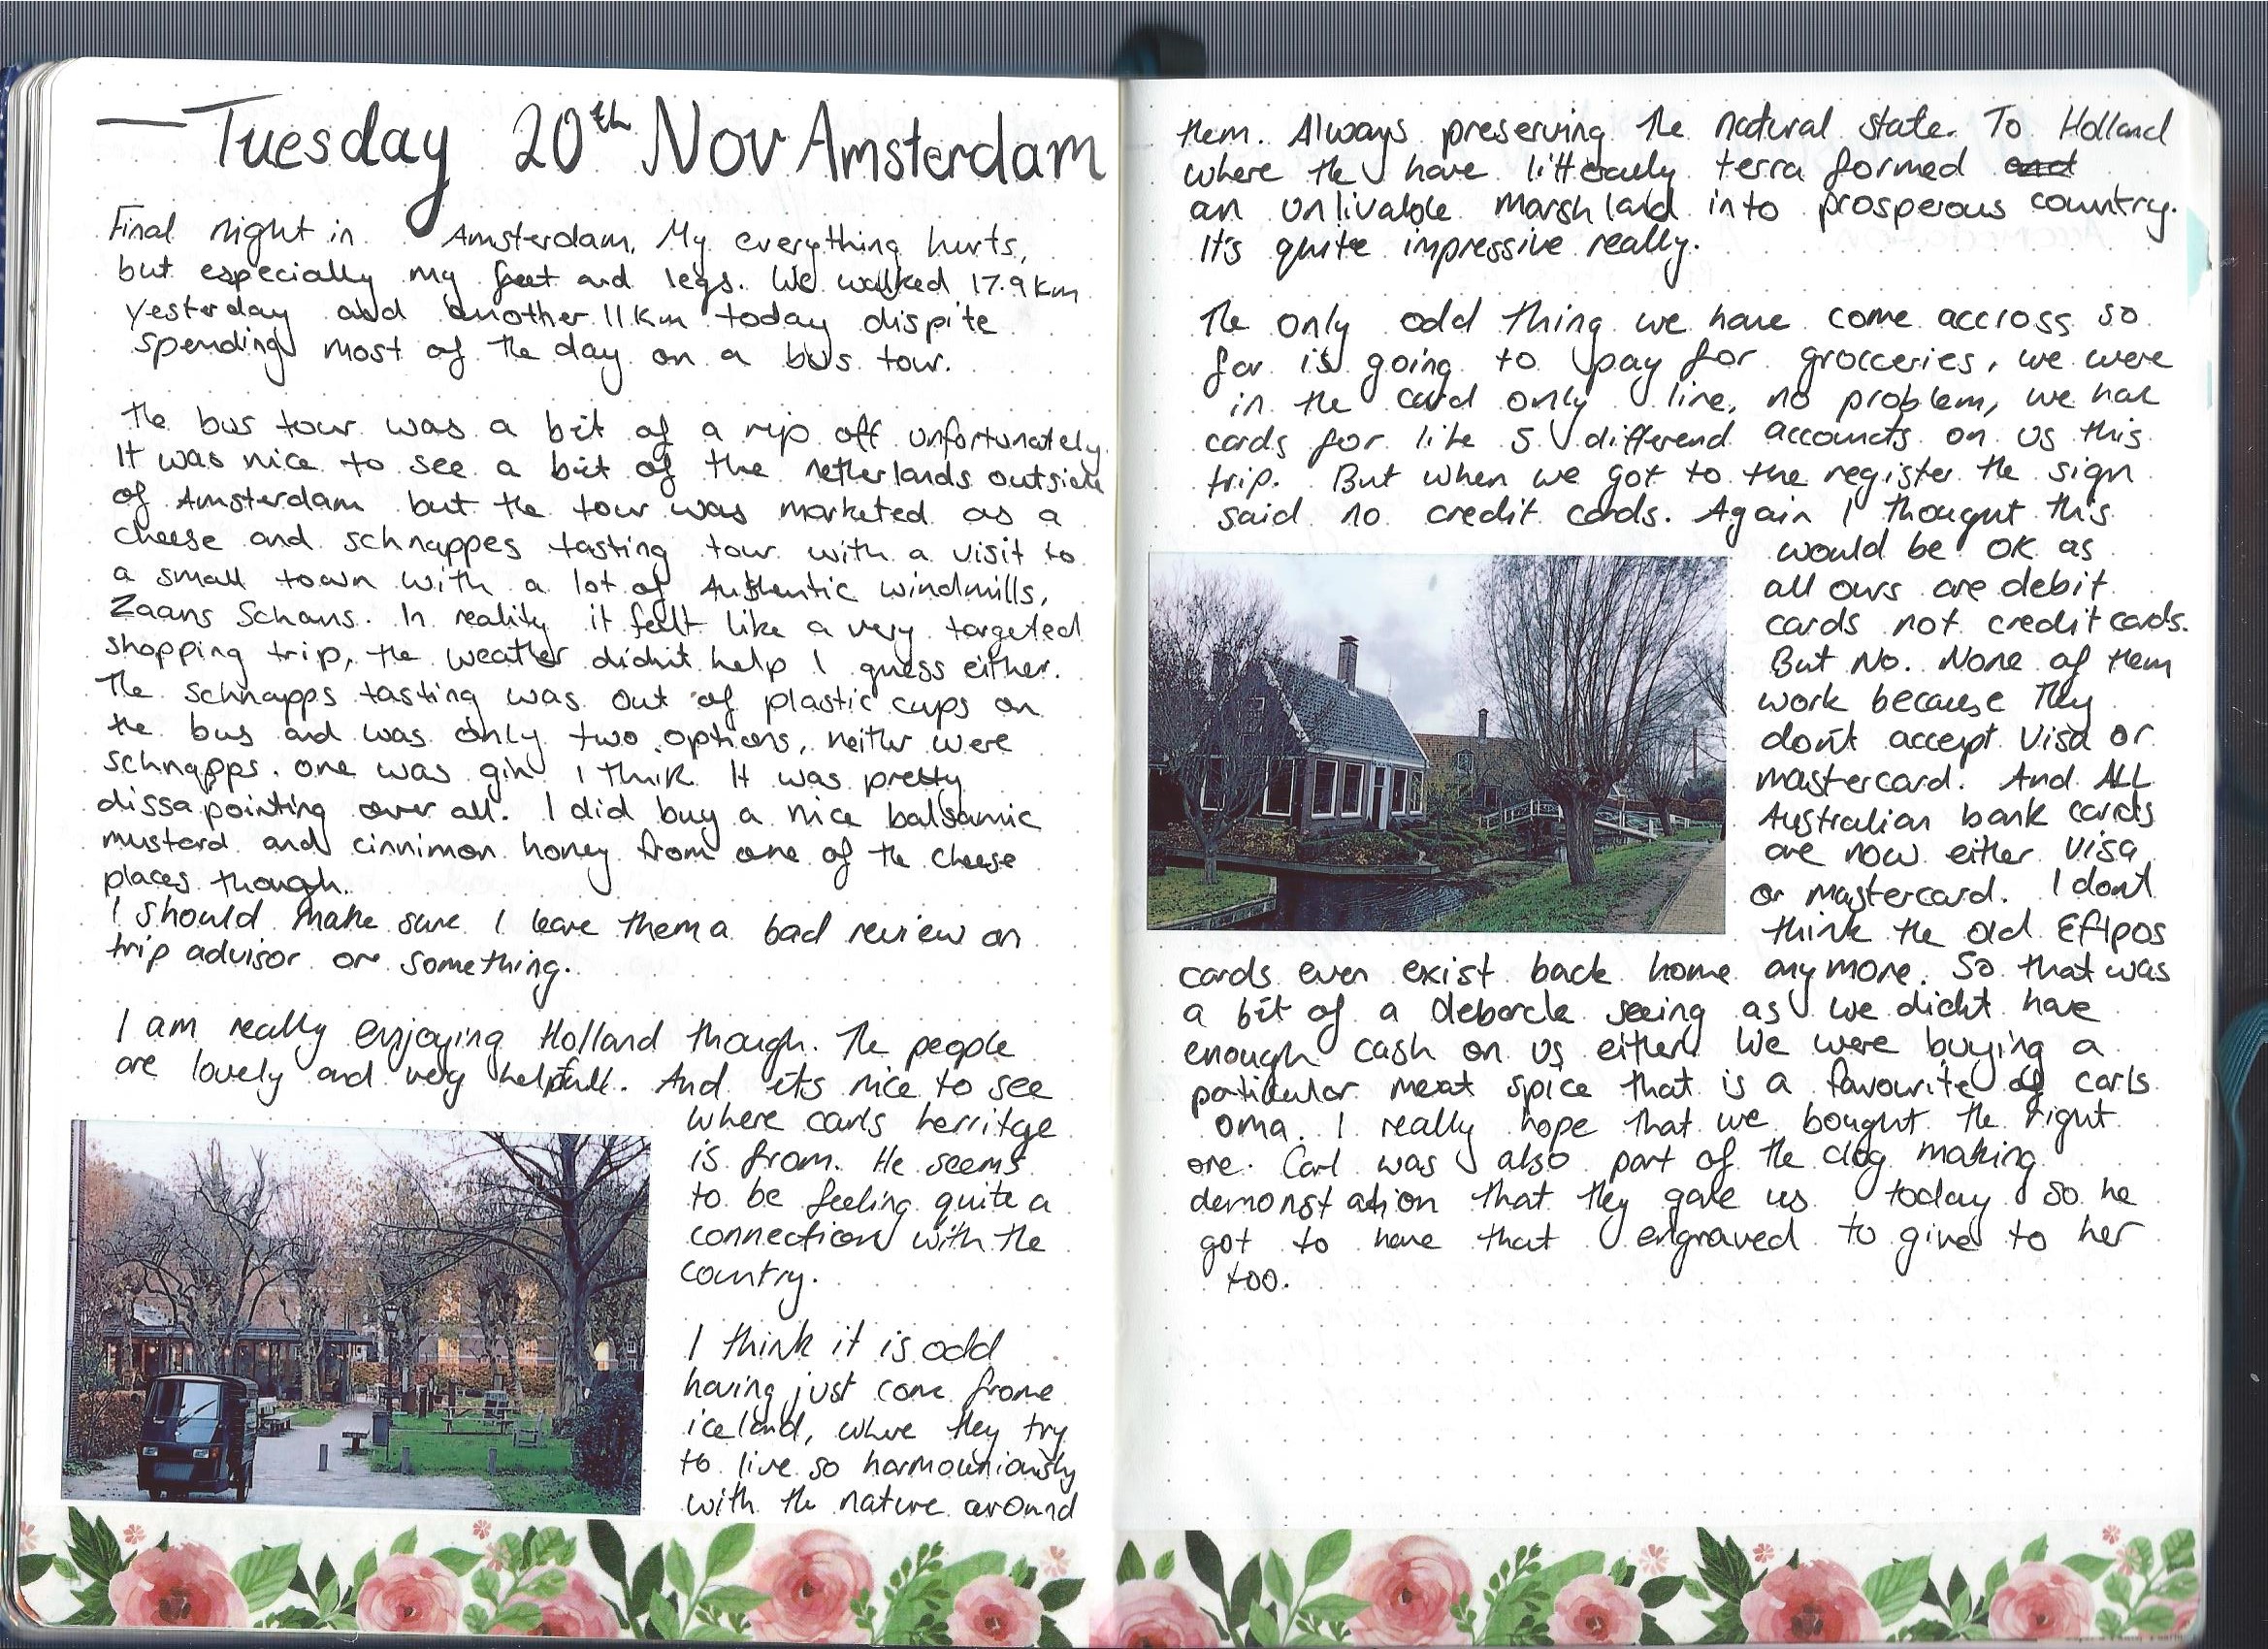 — Tuesday 20th Nov Amsterdam
Final night in Amsterdam. My everything hurts,
but especially my feet and legs. We walked 17.9km
yesterday and another 11km today dispite
spending most of the day on a bus tour.
The bus tour was a bit of a rip off unfortunately.
It was nice to see a bit of the netherlands outside
of Amsterdam but the tour was marketed as a
cheese and schnappes tasting tour with a visit to
a small town with a lot of Authentic windmills,
Zaans Schans. In reality it felt like a very targeted
shopping trip, the weather didn't help I guess either.
The schnapps tasting was out of plastic cups on
the bus and was only two options, neither were
schnapps. one was gin I think. It was pretty
dissapointing over all. I did buy a nice balsamic
mustard and cinnimon honey from one of the cheese
places though.
I should make sure I leave them a bad review on
trip advisor or something.
I am really enjoying Holland though. The people
are lovely and very helpfull. And its nice to see
where carls herritge
is from. He seems
to be feeling quite a
connection with the
country.
I think it is odd
having just come frome
iceland, where they try
to live so harmouniously
with the nature around
them. Always preserving the natural state. To Holland
where the have litteraly terra formed and
an unlivable marsh land into prosperous country.
It's quite impressive really.
The only odd thing we have come accross so
far is going to pay for grocceries, we were
in the card only line, no problem, we had
cards for like 5 differend accounts on us this
trip. But when we got to the register the sign
said no credit cards. Again I thought this
would be OK as
all ours are debit
cards not credit cards.
But No. None of them
work because they
don't accept visa or
mastercard. And ALL
Australian bank cards
are now either visa
or mastercard. I dont
think the old Eftpos
cards even exist back home anymore. So that was
a bit of a debarcle seeing as we didn't have
enough cash on us either. We were buying a
particular meat spice that is a favourite of carls
oma. I really hope that we bought the right
one. Carl was also part of the clog making
demonstation that they gave us today so he
got to have that engraved to give to her
too.